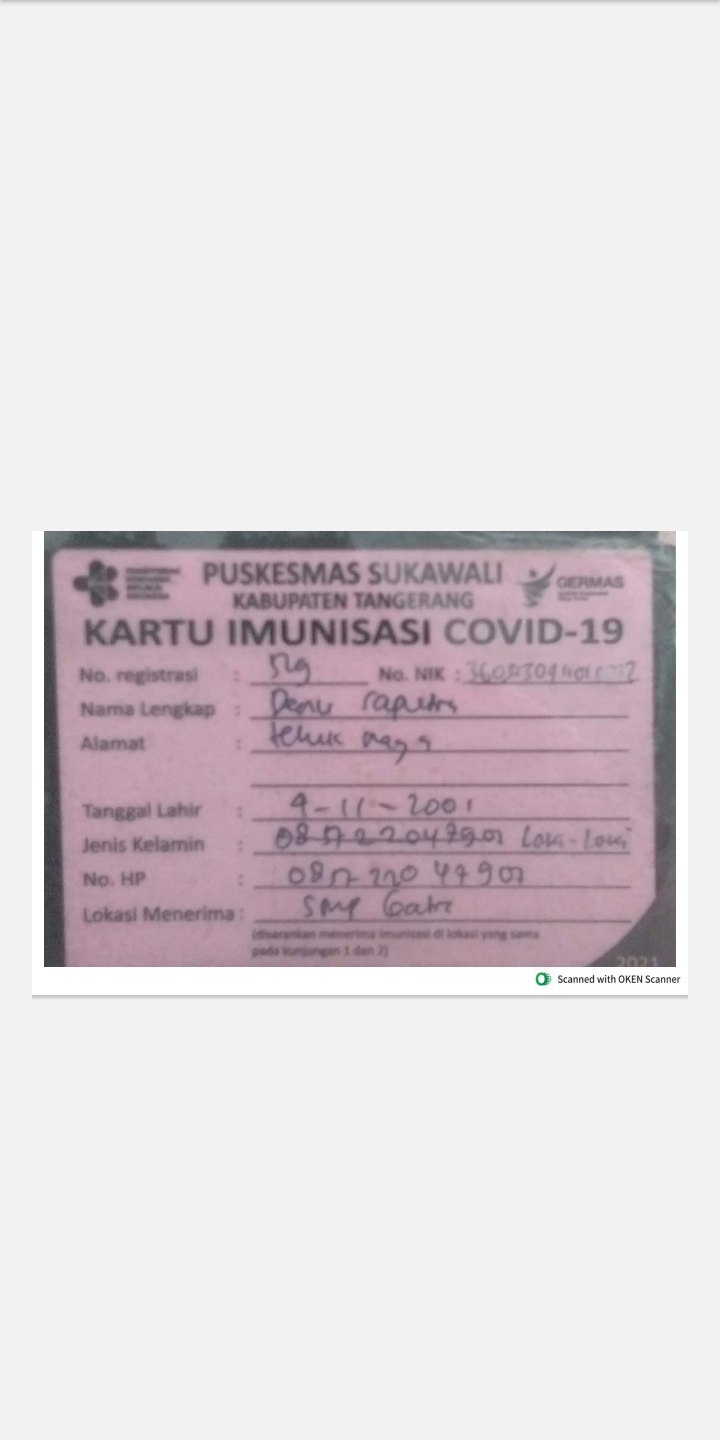 PUSKESMAS SUKAWALI
KABUPATEN TANGERANG
GERMAS
KARTU IMUNISASI COVID-19
No. registrasi : 519 No. NIK :
Nama Lengkap : Denu saputra
Alamat : teluk naga
Tanggal Lahir : 4-11-2001
Jenis Kelamin : Laki-Laki
No. HP :
Lokasi Menerima : SMP
(disarankan menerima imunisasi di lokasi yang sama
pada kunjungan 1 dan 2)
2021
Scanned with OKEN Scanner